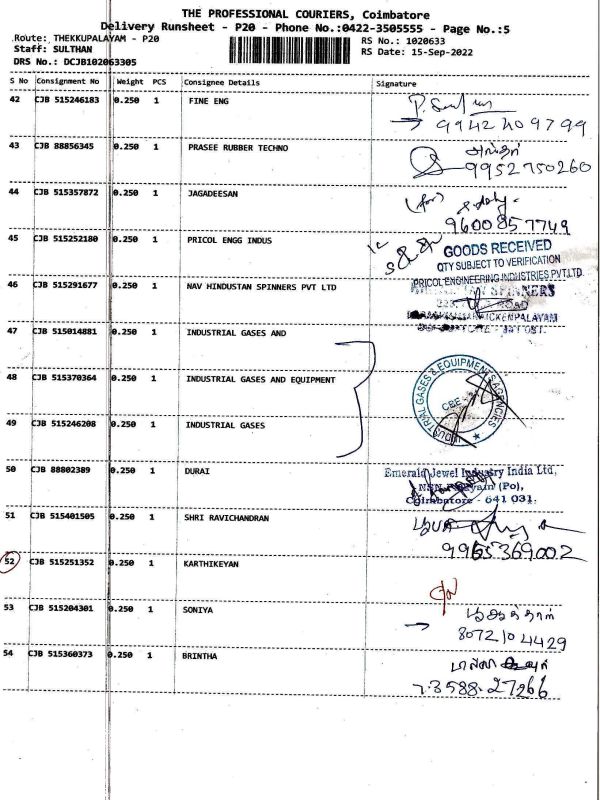 THE PROFESSIONAL COURIERS, Coimbatore
Delivery Runsheet - P20 - Phone No.:0422-3505555 - Page No.:5
Route: THEKKUPALAYAM - P20
RS No.: 1020633
Staff: SULTHAN
RS Date: 15-Sep-2022
DRS No.: DCJB102063305
S No Consignment No Weight PCS Consignee Details Signature
42 CJB 515246183 0.250 1 FINE ENG
9942409799
43 CJB 88856345 0.250 1 PRASEE RUBBER TECHNO
9952750260
44 CJB 515357872 0.250 1 JAGADEESAN
(for)
9600857749
45 CJB 515252180 0.250 1 PRICOL ENGG INDUS
GOODS RECEIVED
QTY SUBJECT TO VERIFICATION
PRICOL ENGINEERING INDUSTRIES PVT.LTD.
46 CJB 515291677 0.250 1 NAV HINDUSTAN SPINNERS PVT LTD
SPINNERS
ROAD
47 CJB 515014881 0.250 1 INDUSTRIAL GASES AND
48 CJB 515370364 0.250 1 INDUSTRIAL GASES AND EQUIPMENT
INDUSTRIAL GASES & EQUIPMENTS AGENCIES
CBE
49 CJB 515246208 0.250 1 INDUSTRIAL GASES
50 CJB 88802389 0.250 1 DURAI
Emerald Jewel Industry India Ltd,
(Po),
Coimbatore - 641 031.
51 CJB 515401505 0.250 1 SHRI RAVICHANDRAN
9965369002
52 CJB 515251352 0.250 1 KARTHIKEYAN
53 CJB 515204301 0.250 1 SONIYA
8072104429
54 CJB 515360373 0.250 1 BRINTHA
73588 27266